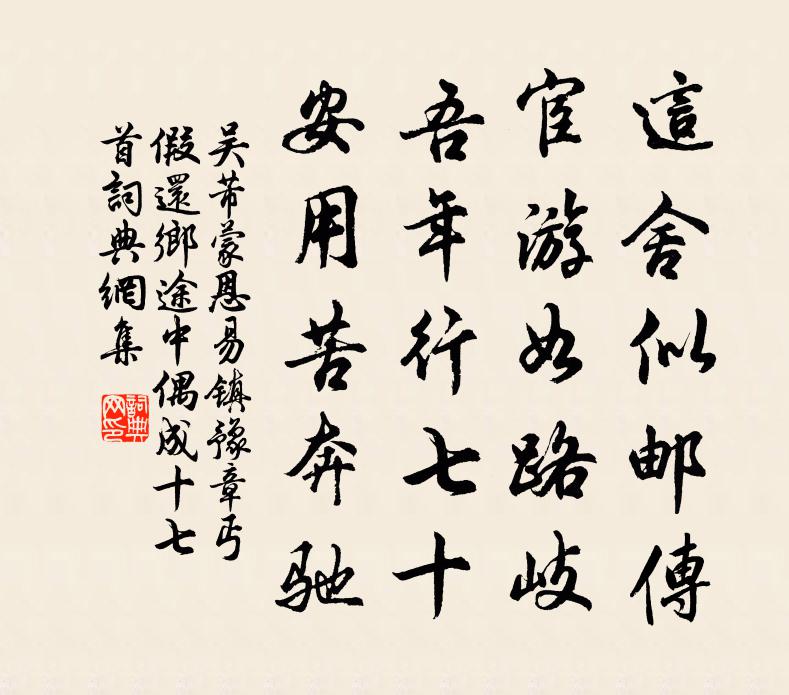 這舍似邮傳
宦游如路歧
吾年行七十
安用苦奔驰
吴芾蒙恩易镇豫章丐
假還鄉途中偶成十七
首詞典網集
詞典
网印